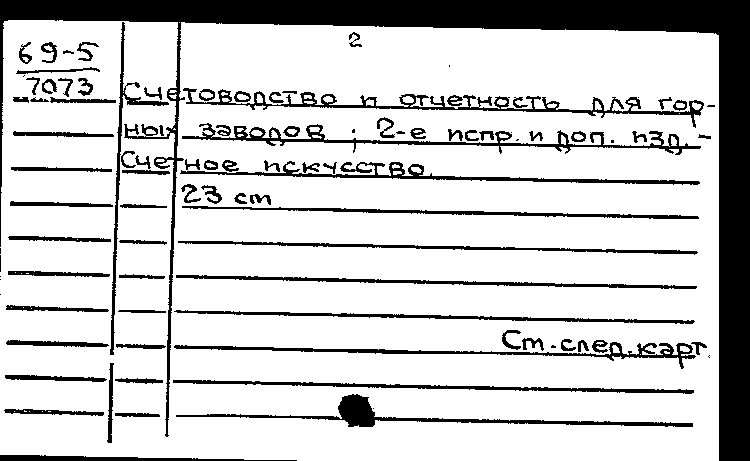 2
69-5
7073
Счетоводство и отчетность для гор-
ных заводов ; 2-е испр. и доп. изд. -
Счетное искусство.
23 cm
См. след. карт.